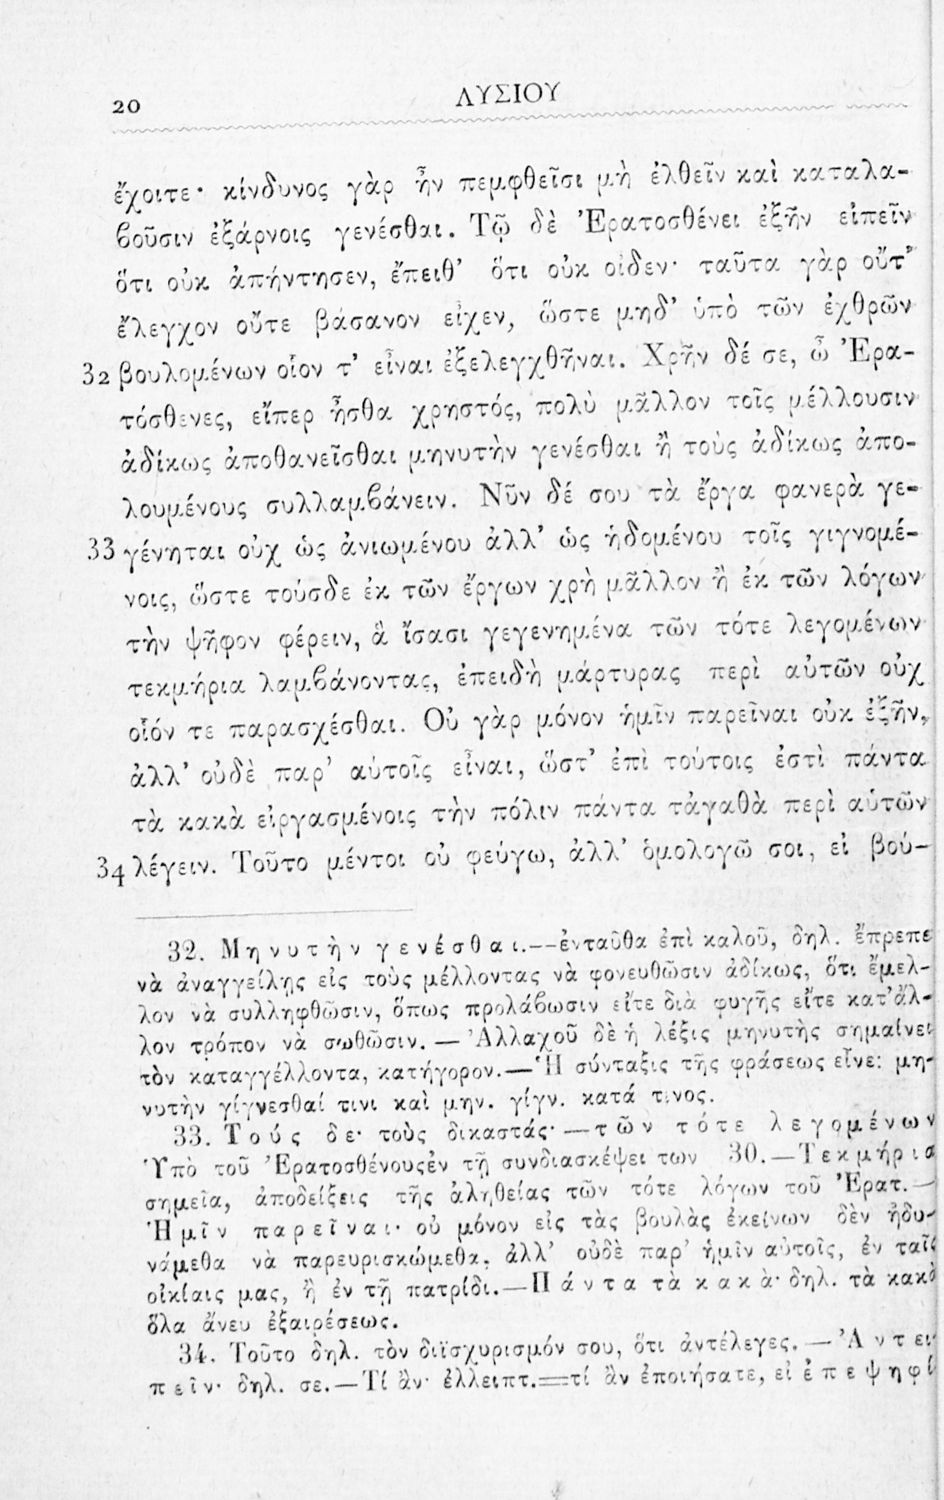 20
ΛΥΣΙΟΥ
ἔχοιτε· κίνδυνος γὰρ ἦν πεμφθεῖσι μὴ ἐλθεῖν καὶ καταλα-
βοῦσιν ἐξάρνοις γενέσθαι. Τῷ δὲ Ἐρατοσθένει ἐξῆν εἰπεῖν
ὅτι οὐκ ἀπήντησεν, ἔπειθ’ ὅτι οὐκ οἶδεν· ταῦτα γὰρ οὔτ’
ἔλεγχον οὔτε βάσανον εἶχεν, ὥστε μηδ’ ὑπὸ τῶν ἐχθρῶν
32 βουλομένων οἷον τ’ εἶναι ἐξελεγχθῆναι. Χρῆν δέ σε, ὦ Ἐρα-
τόσθενες, εἴπερ ἦσθα χρηστός, πολὺ μᾶλλον τοῖς μέλλουσιν
ἀδίκως ἀποθανεῖσθαι μηνυτὴν γενέσθαι ἢ τοὺς ἀδίκως ἀπο-
λουμένους συλλαμβάνειν. Νῦν δέ σου τὰ ἔργα φανερὰ γε-
33 γένηται οὐχ ὡς ἀνιωμένου ἀλλ’ ὡς ἡδομένου τοῖς γιγνομέ-
νοις, ὥστε τούσδε ἐκ τῶν ἔργων χρὴ μᾶλλον ἢ ἐκ τῶν λόγων
τὴν ψῆφον φέρειν, ἃ ἴσασι γεγενημένα τῶν τότε λεγομένων
τεκμήρια λαμβάνοντας, ἐπειδὴ μάρτυρας περὶ αὐτῶν οὐχ
οἷόν τε παρασχέσθαι. Οὐ γὰρ μόνον ἡμῖν παρεῖναι οὐκ ἐξῆν,
ἀλλ’ οὐδὲ παρ’ αὑτοῖς εἶναι, ὥστ’ ἐπὶ τούτοις ἐστὶ πάντα
τὰ κακὰ εἰργασμένοις τὴν πόλιν πάντα τἀγαθὰ περὶ αὑτῶν
34 λέγειν. Τοῦτο μέντοι οὐ φεύγω, ἀλλ’ ὁμολογῶ σοι, εἰ βού-
32. Μηνυτὴν γενέσθαι.—ἐνταῦθα ἐπὶ καλοῦ, δηλ. ἔπρεπε
νὰ ἀναγγείλῃς εἰς τοὺς μέλλοντας νὰ φονευθῶσιν ἀδίκως, ὅτι ἔμελ-
λον νὰ συλληφθῶσιν, ὅπως προλάβωσιν εἴτε διὰ φυγῆς εἴτε κατ’ ἄλ-
λον τρόπον νὰ σωθῶσιν. — Ἀλλαχοῦ δὲ ἡ λέξις μηνυτὴς σημαίνει
τὸν καταγγέλλοντα, κατήγορον.—Ἡ σύνταξις τῆς φράσεως εἶνε: μη-
νυτὴν γίγνεσθαί τινι καὶ μην. γίγν. κατά τινος.
33. Τούς δε· τοὺς δικαστάς· — τῶν τότε λεγομένων
Ὑπὸ τοῦ Ἐρατοσθένουςἐν τῇ συνδιασκέψει των 30.—Τεκμήρια
σημεῖα, ἀποδείξεις τῆς ἀληθείας τῶν τότε λόγων τοῦ Ἐρατ.—
Ἡμῖν παρεῖναι· οὐ μόνον εἰς τὰς βουλὰς ἐκείνων δὲν ἠδυ-
νάμεθα νὰ παρευρισκώμεθα, ἀλλ’ οὐδὲ παρ’ ἡμῖν αὐτοῖς, ἐν ταῖς
οἰκίαις μας, ἢ ἐν τῇ πατρίδι.—Πάντα τὰ κακὰ· δηλ. τὰ κακὰ
ὅλα ἄνευ ἐξαιρέσεως.
34. Τοῦτο δηλ. τὸν διϊσχυρισμόν σου, ὅτι ἀντέλεγες. — Ἀντει
πεῖν· δηλ. σε.—Τί ἂν· ἐλλειπτ.=τί ἂν ἐποιήσατε, εἰ ἐπεψηφί